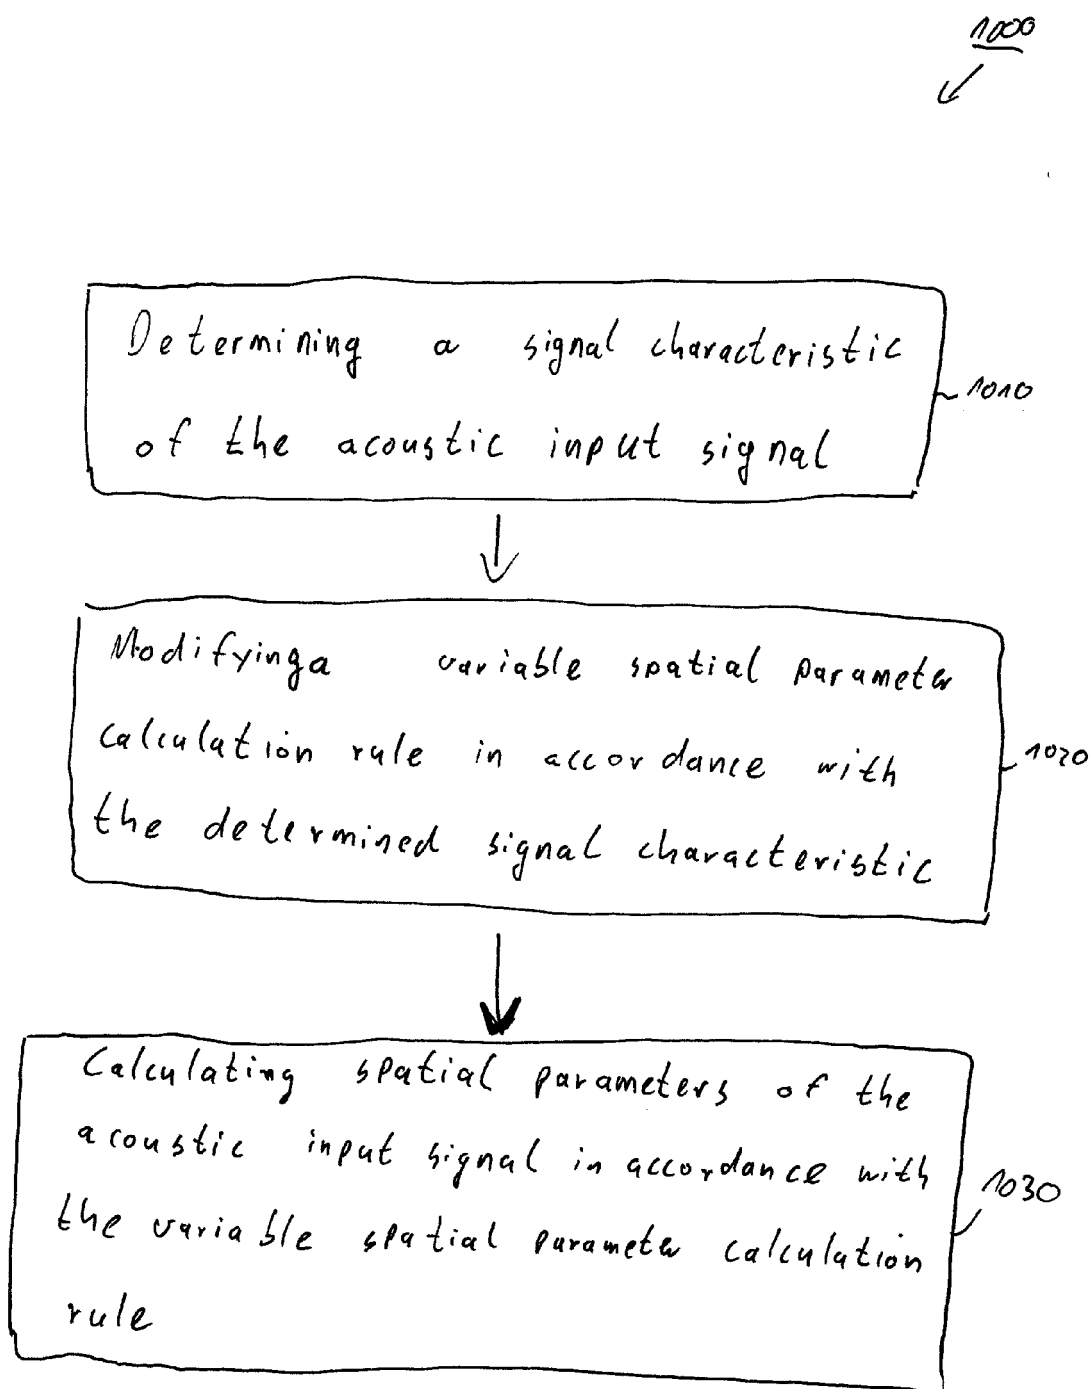 1000
Determining a signal characteristic
of the acoustic input signal
1010
Modifyinga variable spatial parameter
calculation rule in accordance with
the determined signal characteristic
1020
Calculating spatial parameters of the
acoustic input signal in accordance with
the variable spatial parameter calculation
rule
1030